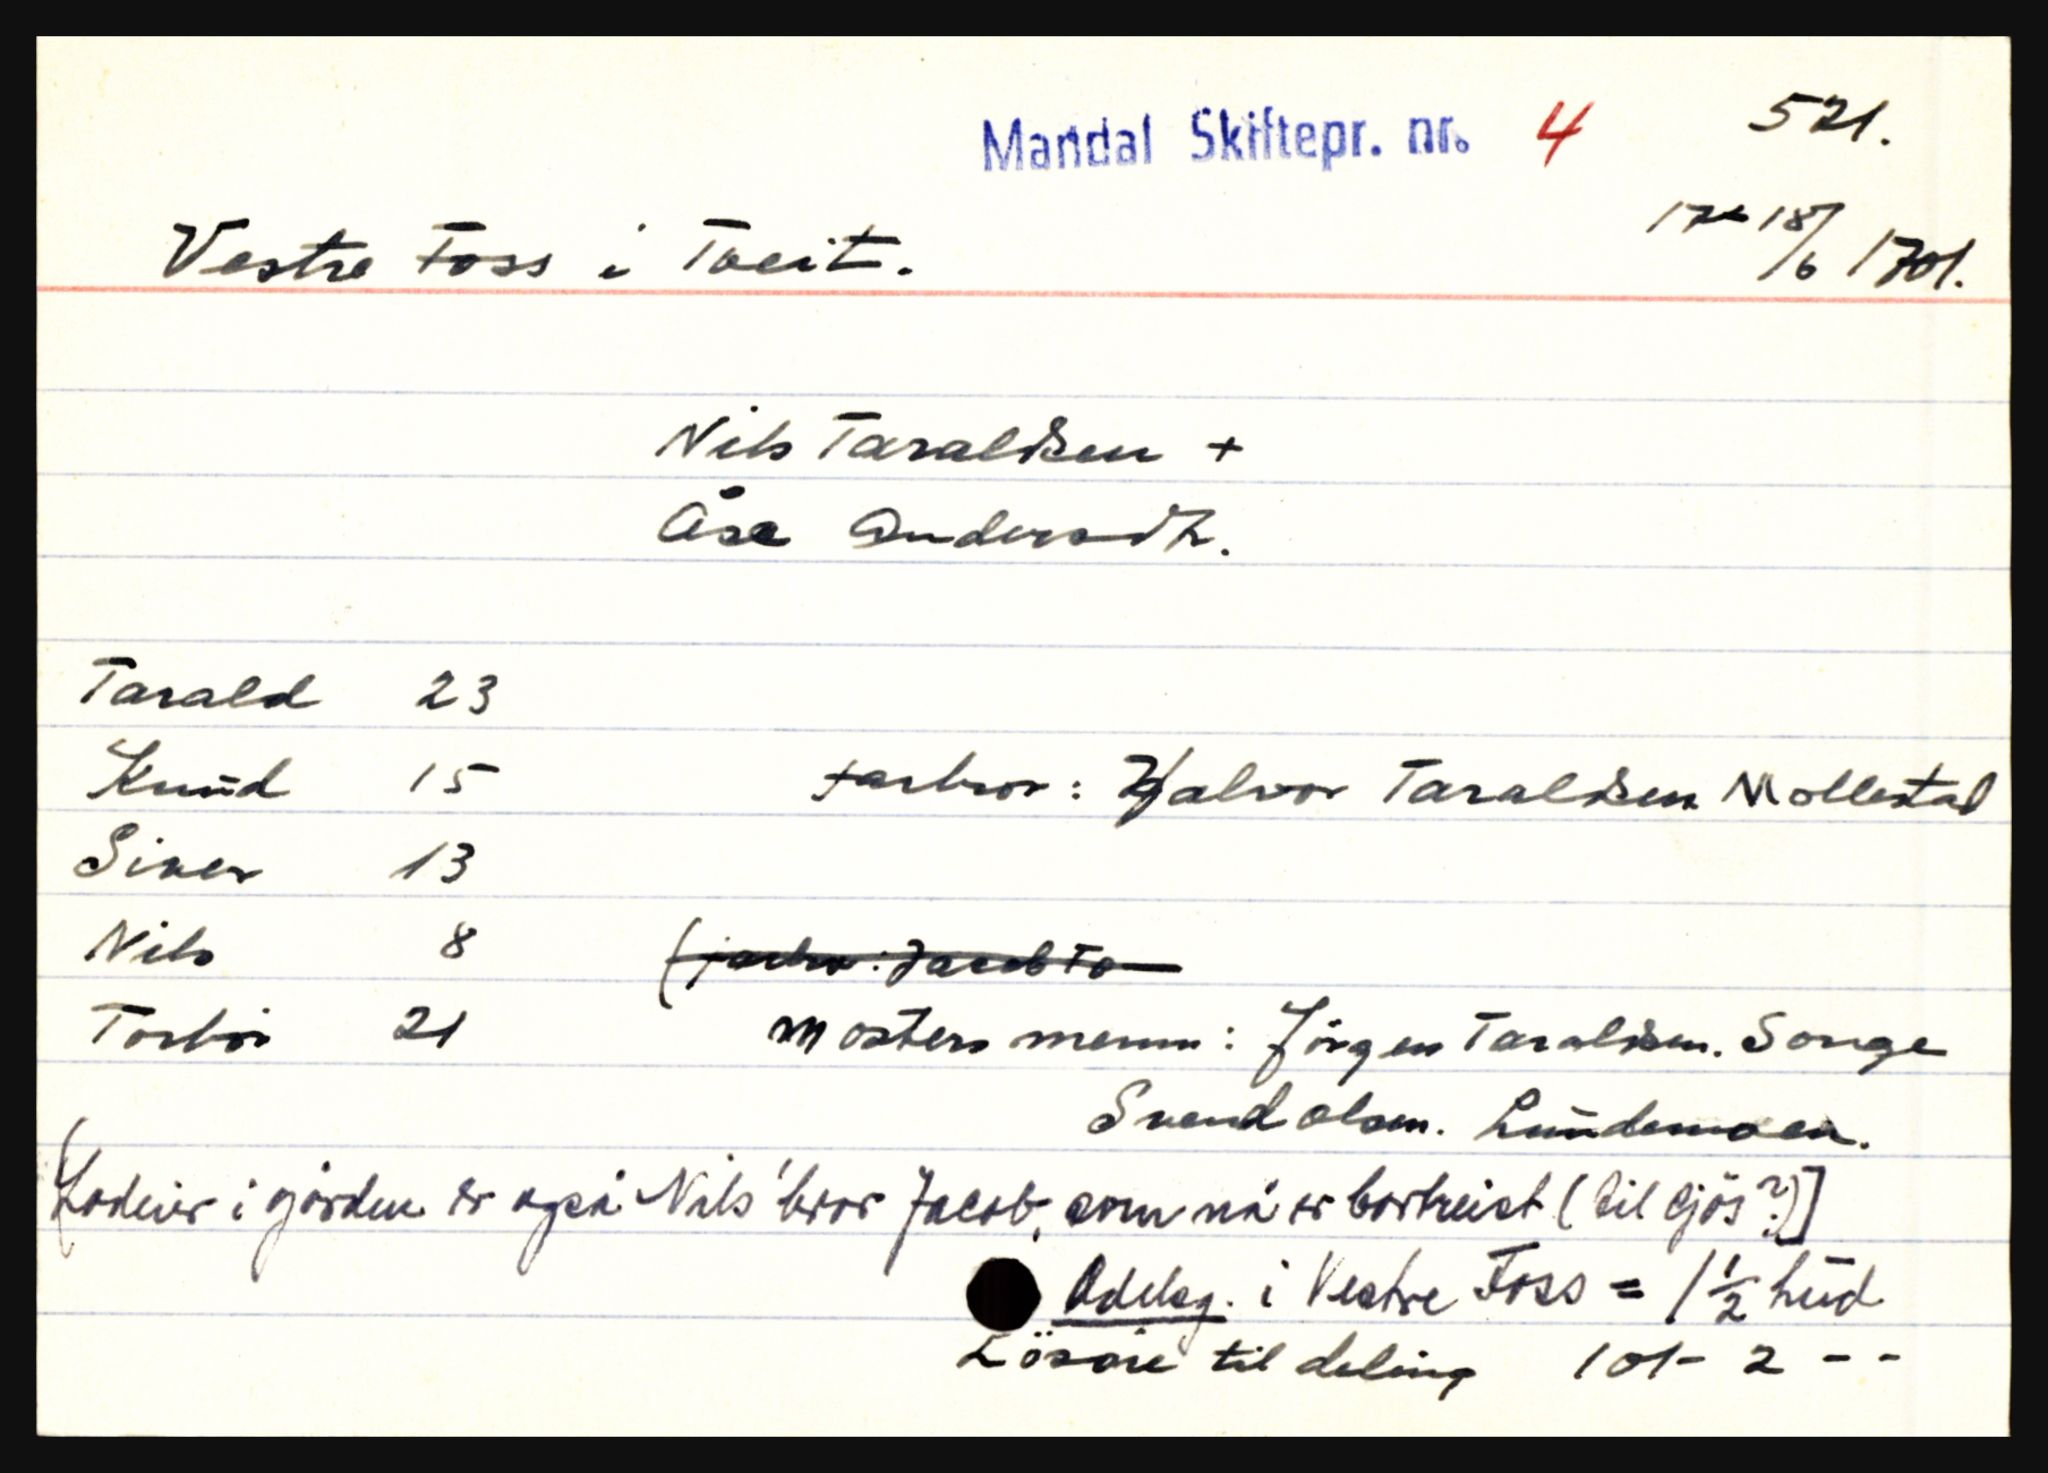 Mandal Skiftepr. nr. 4 521.
18/6 1701.
Vestre Foss i Tveit.
Nils Taraldsen +
Åse Andersdtr.
Tarald 23
Knud 15 farbror: Halvor Taraldsen Mollestad
Siver 13
Nils 8 (farbr: Jacob Ta
Torbor 21 Mosters menn: Jörgen Taraldsen. Songe
Svend Olsen. Lundemoen.
[Lodeier i gården er også Nils' bror Jacob, som nå er bortreist (til sjös?)]
Odelsg. i Vestre Foss = 1 1/2 hud
Lösöre til deling 101- 2 - -